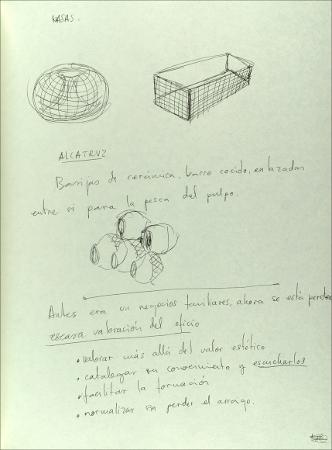 NASAS.
ALCATRUZ
Barrijas de cerámica, barro cocido, enlazadas
entre sí para la pesca del pulpo.
Antes era un negocios familiares, ahora se está perdiendo
escasa valoración del oficio
• valorar más allá del valor estético
• catalogar su conocimiento y escucharlos
• facilitar la formación
• normalizar sin perder el arraigo.